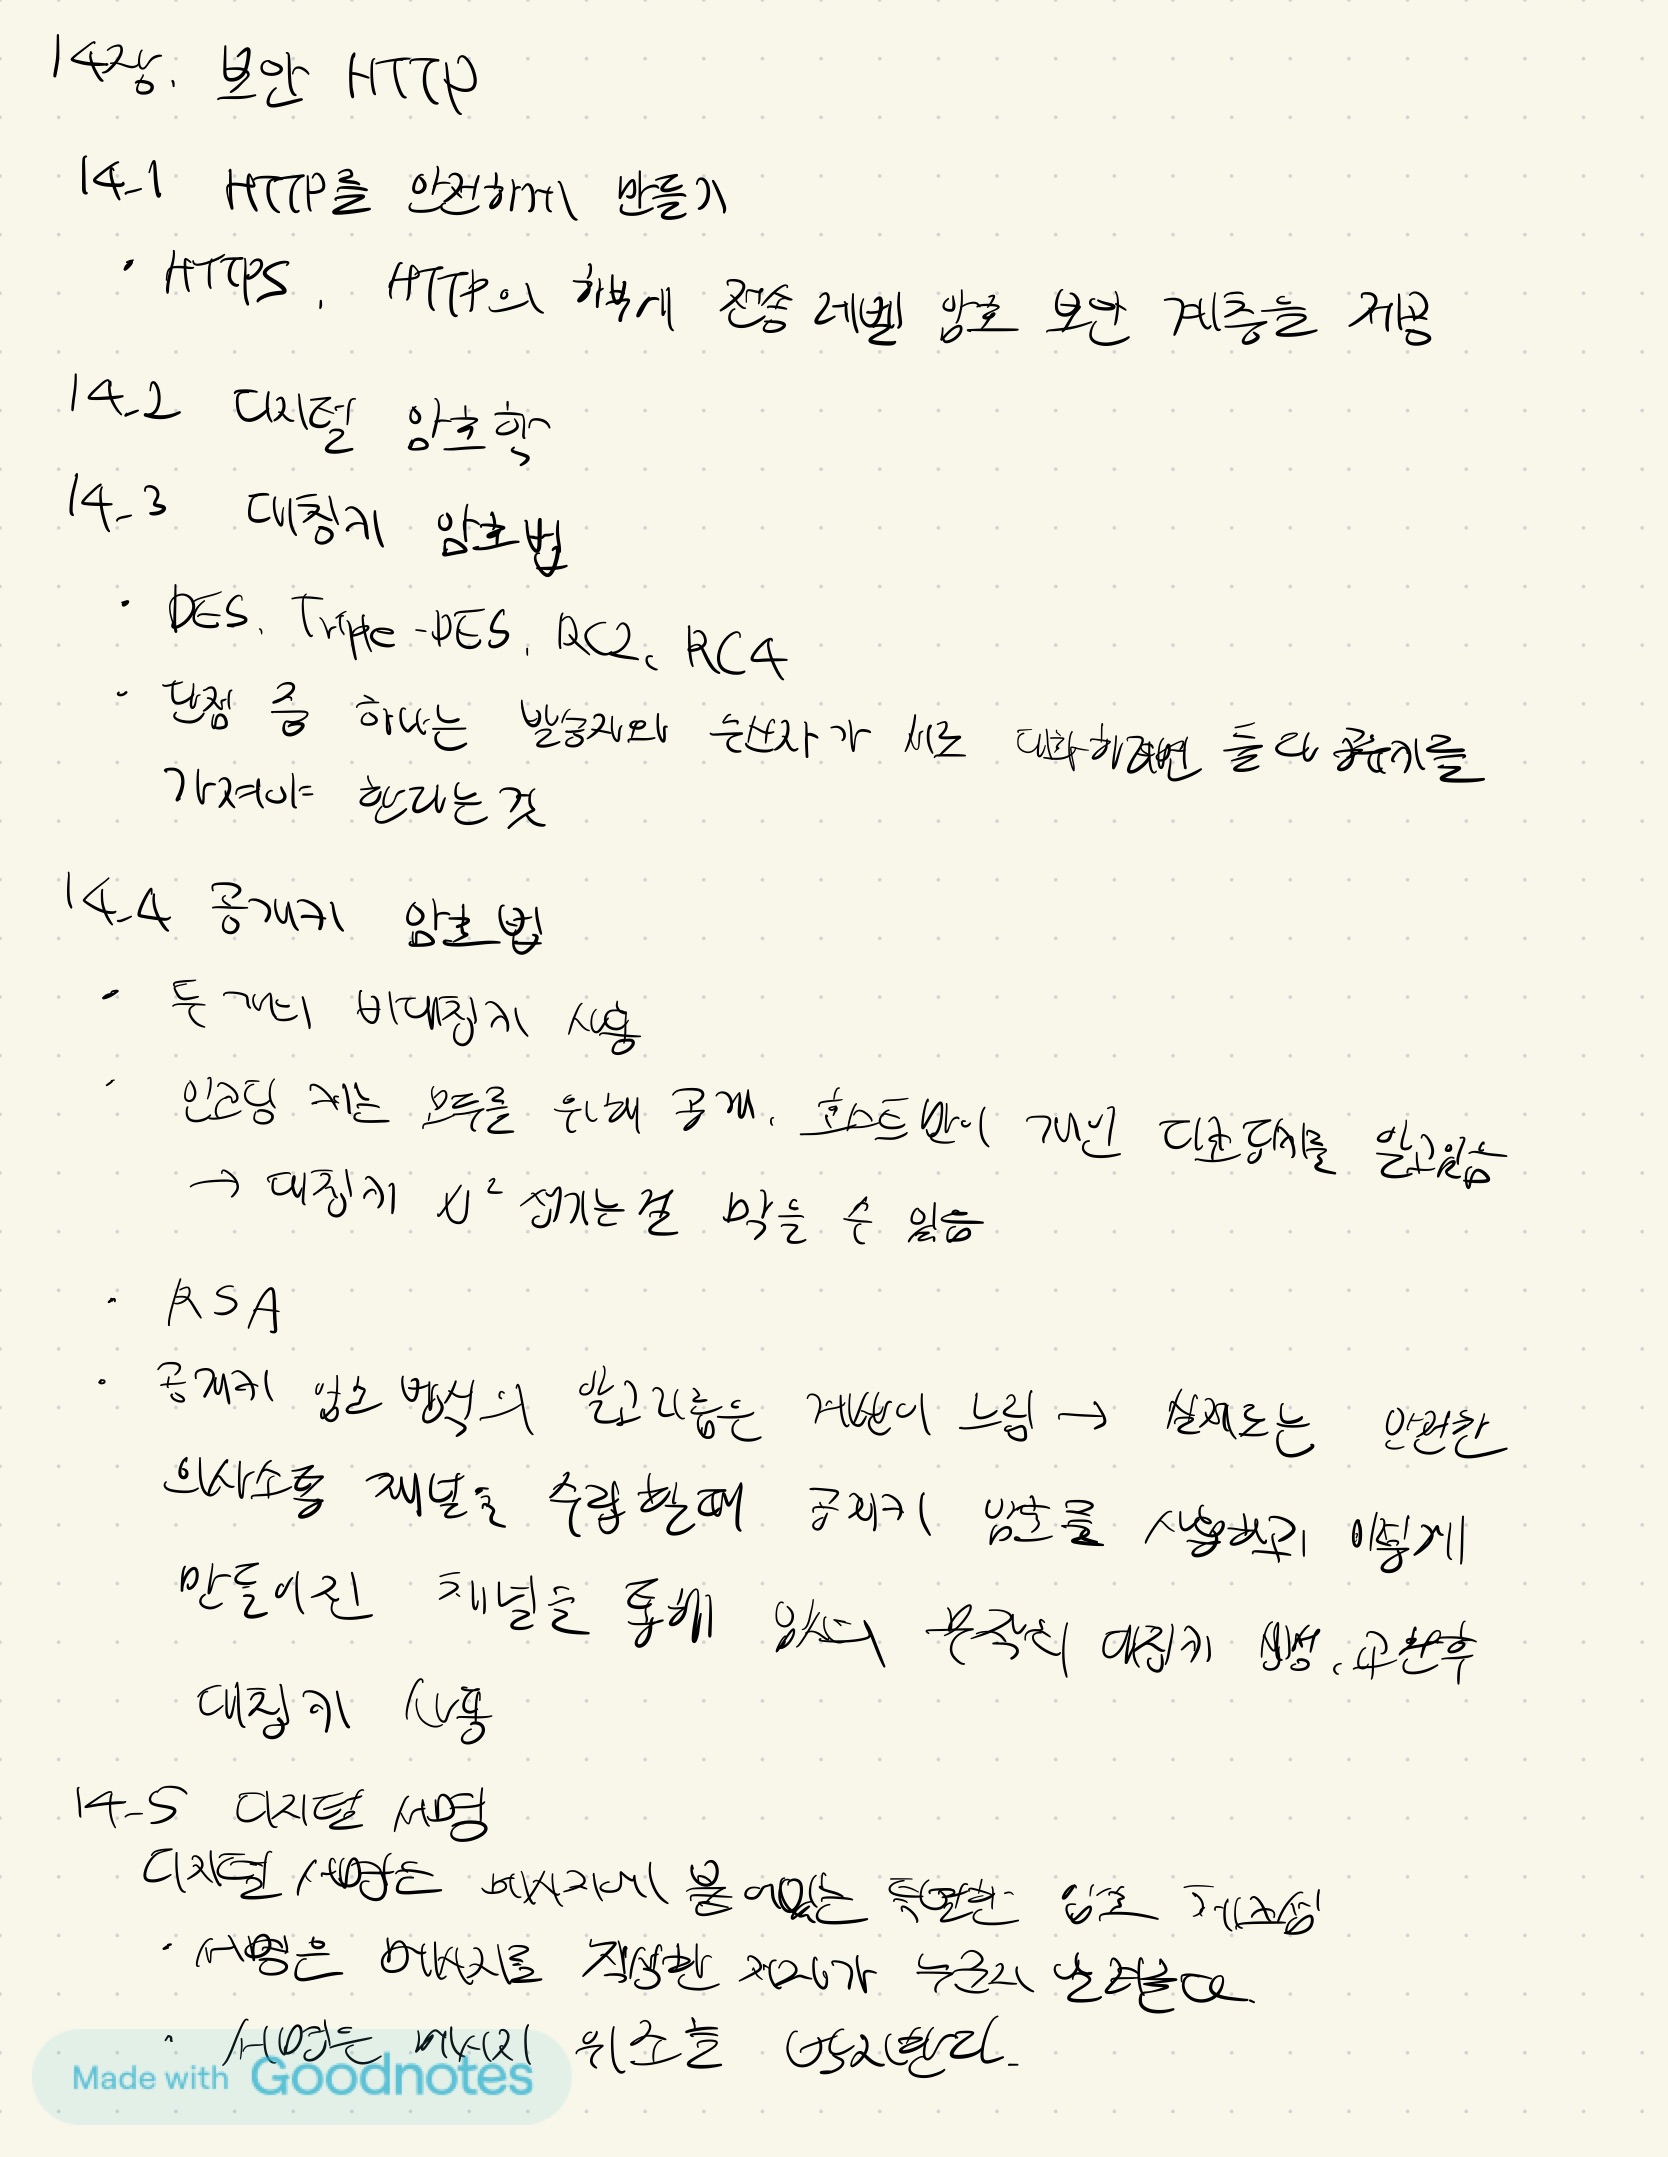 14장. 보안 HTTP
14-1 HTTP를 안전하게 만들기
· HTTPS, HTTP의 하부에 전송 레벨 암호 보안 계층을 제공
14-2 디지털 암호학
14-3 대칭키 암호법
· DES, Triple-DES, RC2, RC4
· 단점 중 하나는 발송자와 수신자가 서로 대화하려면 둘 다 공유키를
가져야 한다는 것
14-4 공개키 암호법
· 두 개의 비대칭키 사용
· 인코딩 키는 모두를 위해 공개, 호스트만이 개인 디코딩키를 알고있음
→ 대칭키 N² 생기는 걸 막을 수 있음
· RSA
· 공개키 암호 방식의 알고리즘은 계산이 느림 → 실제로는 안전한
의사소통 채널을 수립할때 공개키 암호를 사용하고 이렇게
만들어진 채널을 통해 임시의 무작위 대칭키 생성, 교환후
대칭키 사용
14-5 디지털 서명
디지털 서명은 메시지에 붙어있는 특별한 암호 체크섬
· 서명은 메시지를 작성한 저자가 누군지 알려준다.
· 서명은 메시지 위조를 방지한다.
Made with Goodnotes